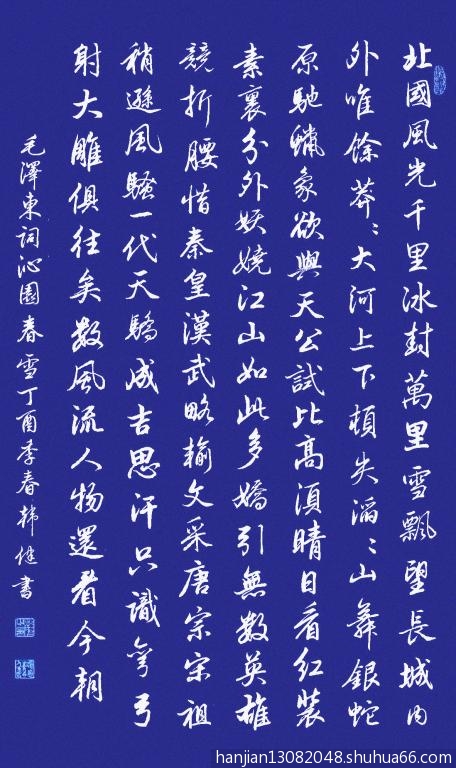 北國風光千里冰封萬里雪飄望長城内
外唯餘莽〻大河上下頓失滔〻山舞銀蛇
原馳蠟象欲與天公試比高須晴日看紅裝
素裹分外妖嬈江山如此多嬌引無數英雄
競折腰惜秦皇漢武略輸文采唐宗宋祖
稍遜風騷一代天驕成吉思汗只識彎弓
射大雕俱往矣數風流人物還看今朝
毛澤東詞沁園春雪丁酉季春韓健書
hanjian13082048.shuhua66.com